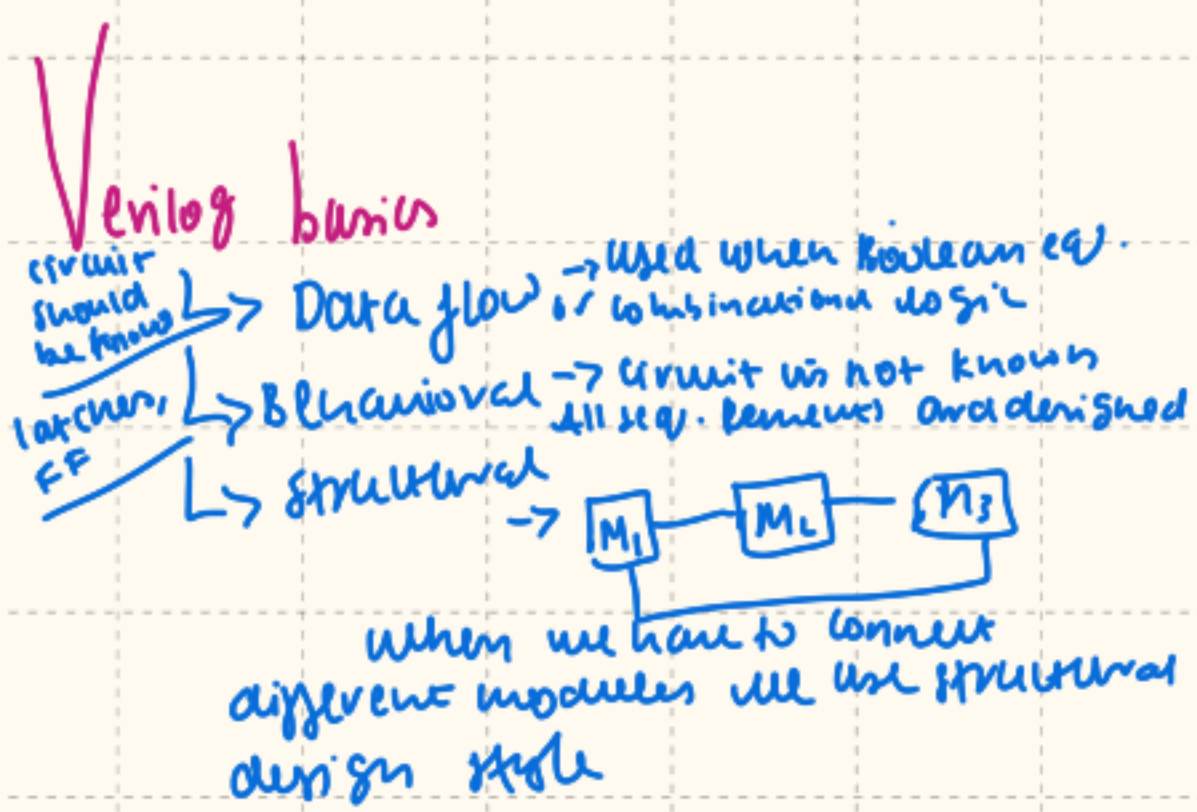 Verilog basics
circuit
should
be known
Data flow → used when Boolean eq.
or combinational logic
latches,
FF
Behavioral → circuit is not known
All seq. and designed
structural →
M1 M2 M3
when we have to connect
different modules we use structural
design style